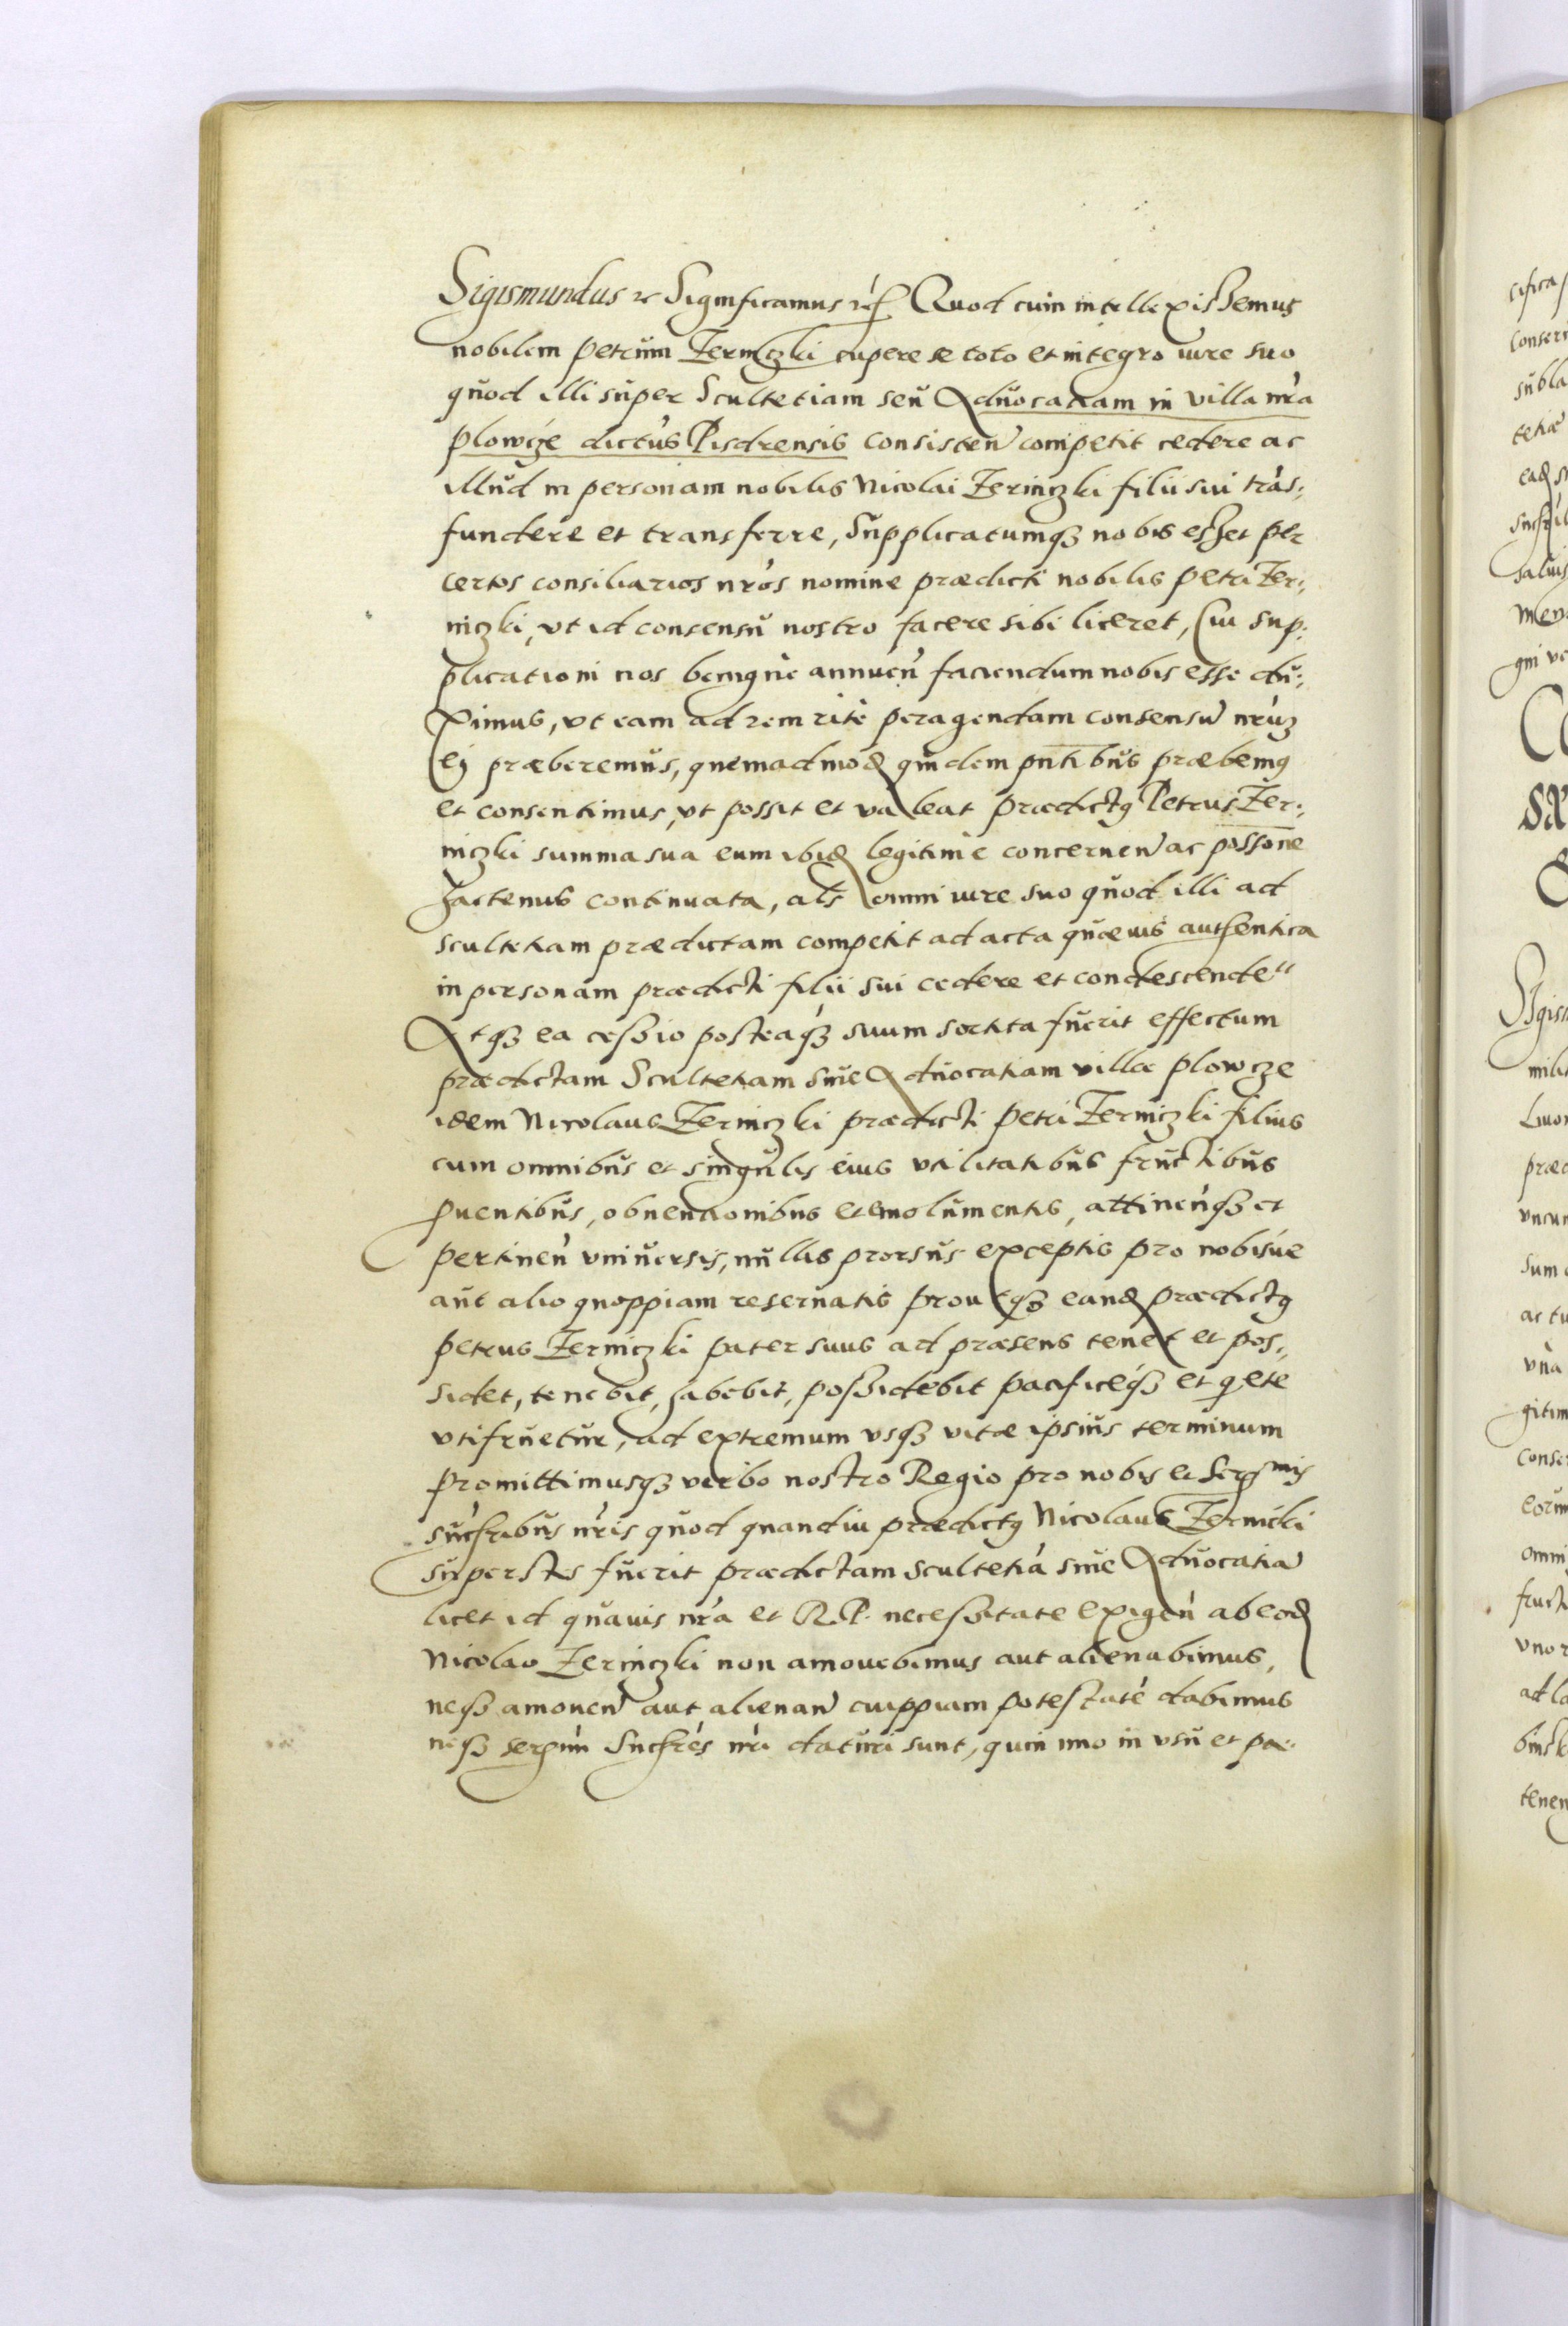 Sigismundus &c Significamus &c. Quod cum intellexissemus
nobilem Petrum Zerniczki cupere se toto et integro iure suo
quod illi super Scultetiam seu Aduocatiam in villa nr̃a
Plowcze dictus Pisdrensis consisteñ competit cedere ac
illud in personam nobilis Nicolai Zerniczki filii sui trãs:
fundere et transferre, Supplicatumq3 nobis esset per
certos consiliarios nr̃os nomine prædicti nobilis Petri Zer:
niczki, vt id consensu nostro facere sibi liceret, Cui sup:
plicationi nos benignè annueñ faciendum nobis esse du:
ximus, vt eam ad rem ritè peragendam consensũ nr̃uz
ei præberemus, quemadmodũ quidem pñtibus præbemus
et consentimus, vt possit et valeat prædictus Petrus Zer:
niczki summa sua eum ibid legitimè concerneñ ac possõne
hactenus continuata, als omni iure suo quod illi ad
scultetiam prædictam competit ad acta quæuis authentica
in personam prædicti filii sui cedere et condescende"
Atq3 ea cessio posteaq3 suum sortita fuerit effectum
prædictam Scultetiam siue Aduocatiam villæ Plowcze
idem Nicolaus Zerniczki prædicti Petri Zerniczki filius
cum omnibus et singulis eius vtilitatibus fructibus
puentibus, obuentionibus et emolumentis, attineñq3 et
pertineñ vniuersis, nullis prorsus exceptis pro nobisue
aut alio quoppiam reseruatis proutq3 eand prædictus
Petrus Zerniczki pater suus ad præsens tenet et pos:
sidet, tenebit, habebit, possidebit pacificeq3 et qete
vtifruetur, ad extremum vsq3 vitæ ipsius terminum
Promittimusq3 verbo nostro Regio pro nobis et Serᵐⁱˢ
succribus nr̃is quod quandiu prædictus Nicolaus Zernicki
superstes fuerit prædictam scultetiã siue Aduocatiã
licet id quauis nr̃a et R.P. necessitate exigeñ ab eod
Nicolao Zerniczki non amouebimus aut alienabimus,
neq3 amoueñ aut alienañ cuippiam potestatẽ dabimus
neq3 serẽmi Succrẽs nr̃i daturi sunt, quin imo in vsu et pa: